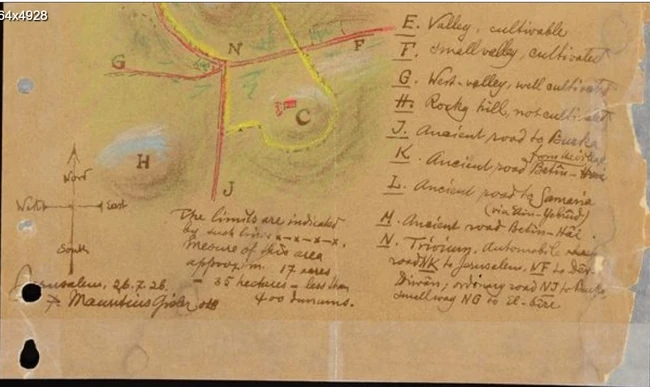 64x4928
E. Valley, cultivable
F. Small valley, cultivated
G. West-valley, well cultivated
H. Rocky hill, not cultivated
J. Ancient road to Burka
K. Ancient road Betîn-
L. Ancient road to Samaria
(via Ain-Yebrûd)
M. Ancient road Betîn-Hai.
N. Trivium, Automobile
road NK to Jerusalem, NF to Dêr
Diwân; ordinary road NJ to Burka,
small way NG to el-Bîre.
N
F
G
C
H
J
North
West
East
South
The limits are indicated
by such lines x-x-x-x.
Mesure of this area
approxim. 17 acres
= 35 hectares = less than
400 dunums.
Jerusalem, 26.7.26.
P. Mauritius Gisler OSB